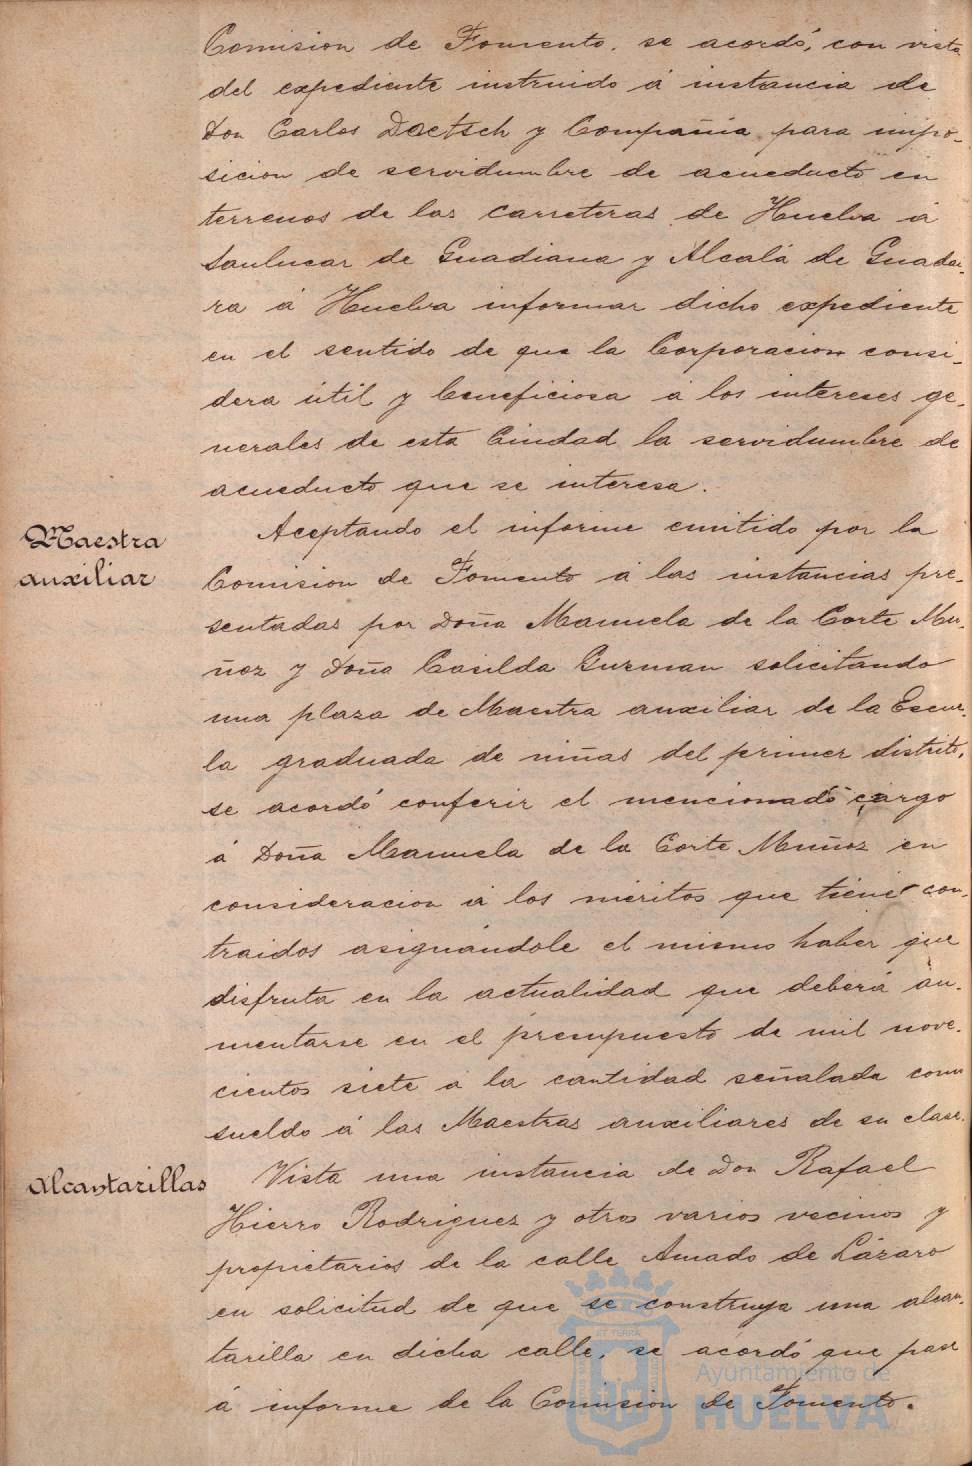 Comision de Fomento, se acordó, con vista
del expediente instruido á instancia de
Don Carlos Doetsch y Compañia para impo-
sicion de servidumbre de acueducto en
terrenos de las carreteras de Huelva á
Sanlucar de Guadiana y Alcalá de Guadai-
ra á Huelva informar dicho expediente
en el sentido de que la Corporacion consi-
dera útil y beneficiosa á los intereses ge-
nerales de esta Ciudad la servidumbre de
acueducto que se interesa.
Maestra
auxiliar
Aceptando el informe emitido por la
Comision de Fomento á las instancias pre-
sentadas por Doña Manuela de la Corte Mu-
ñoz y Doña Casilda Guzman solicitando
una plaza de Maestra auxiliar de la Escue-
la graduada de niñas del primer distrito,
se acordó conferir el mencionado cargo
á Doña Manuela de la Corte Muñoz en
consideracion á los méritos que tiene con-
traidos asignándole el mismo haber que
disfruta en la actualidad que deberá au-
mentarse en el presupuesto de mil nove-
cientos siete á la cantidad señalada como
sueldo á las Maestras auxiliares de su clase.
Alcantarillas
Vista una instancia de Don Rafael
Hierro Rodriguez y otros varios vecinos y
propietarios de la calle Amado de Lázaro
en solicitud de que se construya una alcan-
tarilla en dicha calle, se acordó que pase
á informe de la Comision de Fomento.
Ayuntamiento de
HUELVA